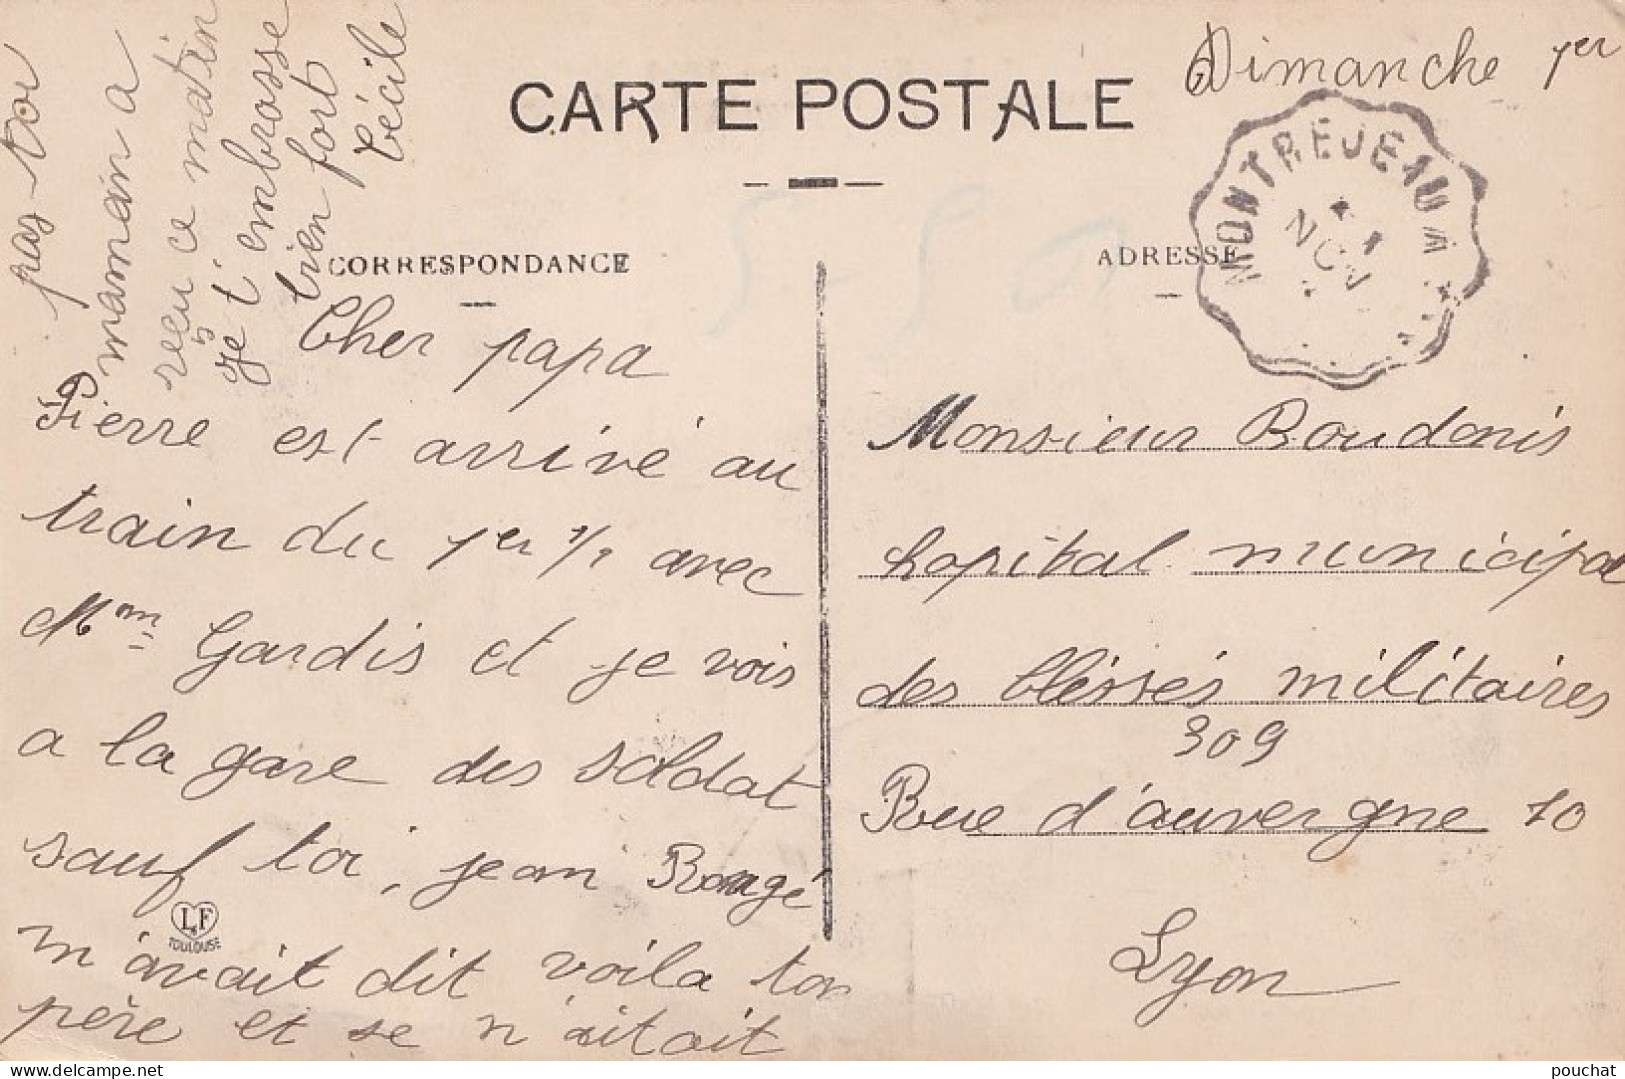 Dimanche 1er
CARTE POSTALE
MONTRÉJEAU
1
NOV
CORRESPONDANCE
ADRESSE
Cher papa
Pierre est arrivé au
train du 1er 1/2 avec
Mme Gardis et je vois
a la gare des soldat
sauf toi, jean Rougé
m'avait dit voila ton
père et se n'aitait
pas toi
mamain a
reçu ce matin
je t'embrasse
bien fort
Cécile
Monsieur Boudonis
hopital municipal
des bléssés militaires
309
Rue d'auvergne 10
Lyon
LF
TOULOUSE
pouchat